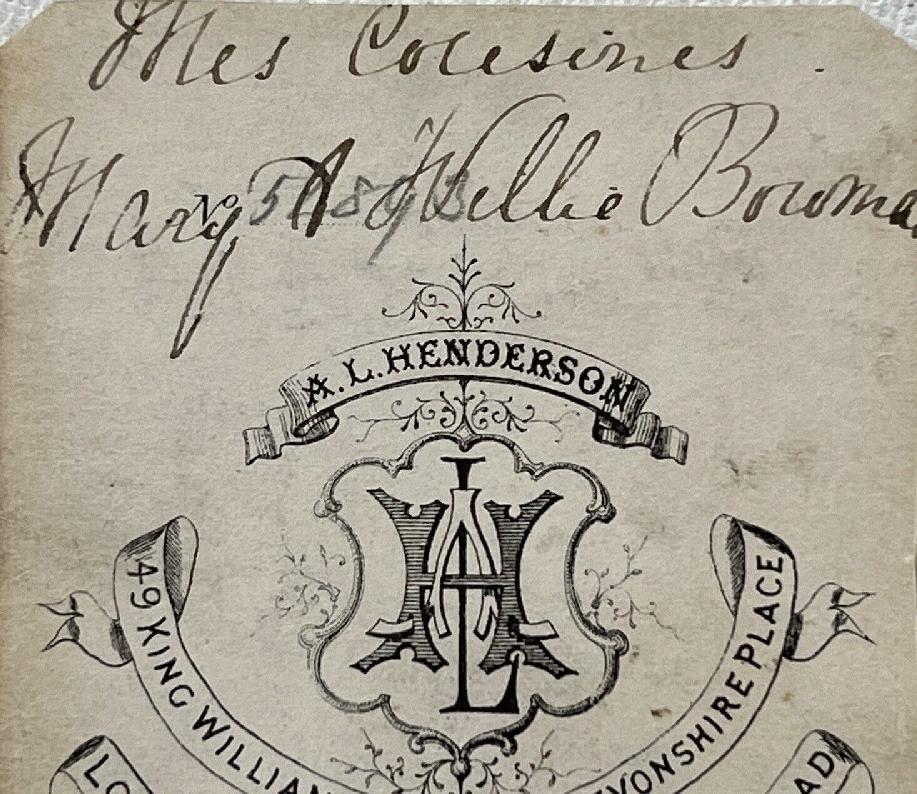 Mes Cousines.
Mary A Willie Bowma
No 5
A. L. HENDERSON
ALH
49 KING WILLIAM
EVONSHIRE PLACE
LO
AD